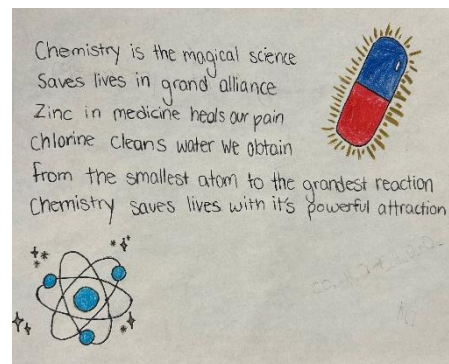 Chemistry is the magical science
Saves lives in grand alliance
Zinc in medicine heals our pain
Chlorine cleans water we obtain
from the smallest atom to the grandest reaction
Chemistry saves lives with it's powerful attraction